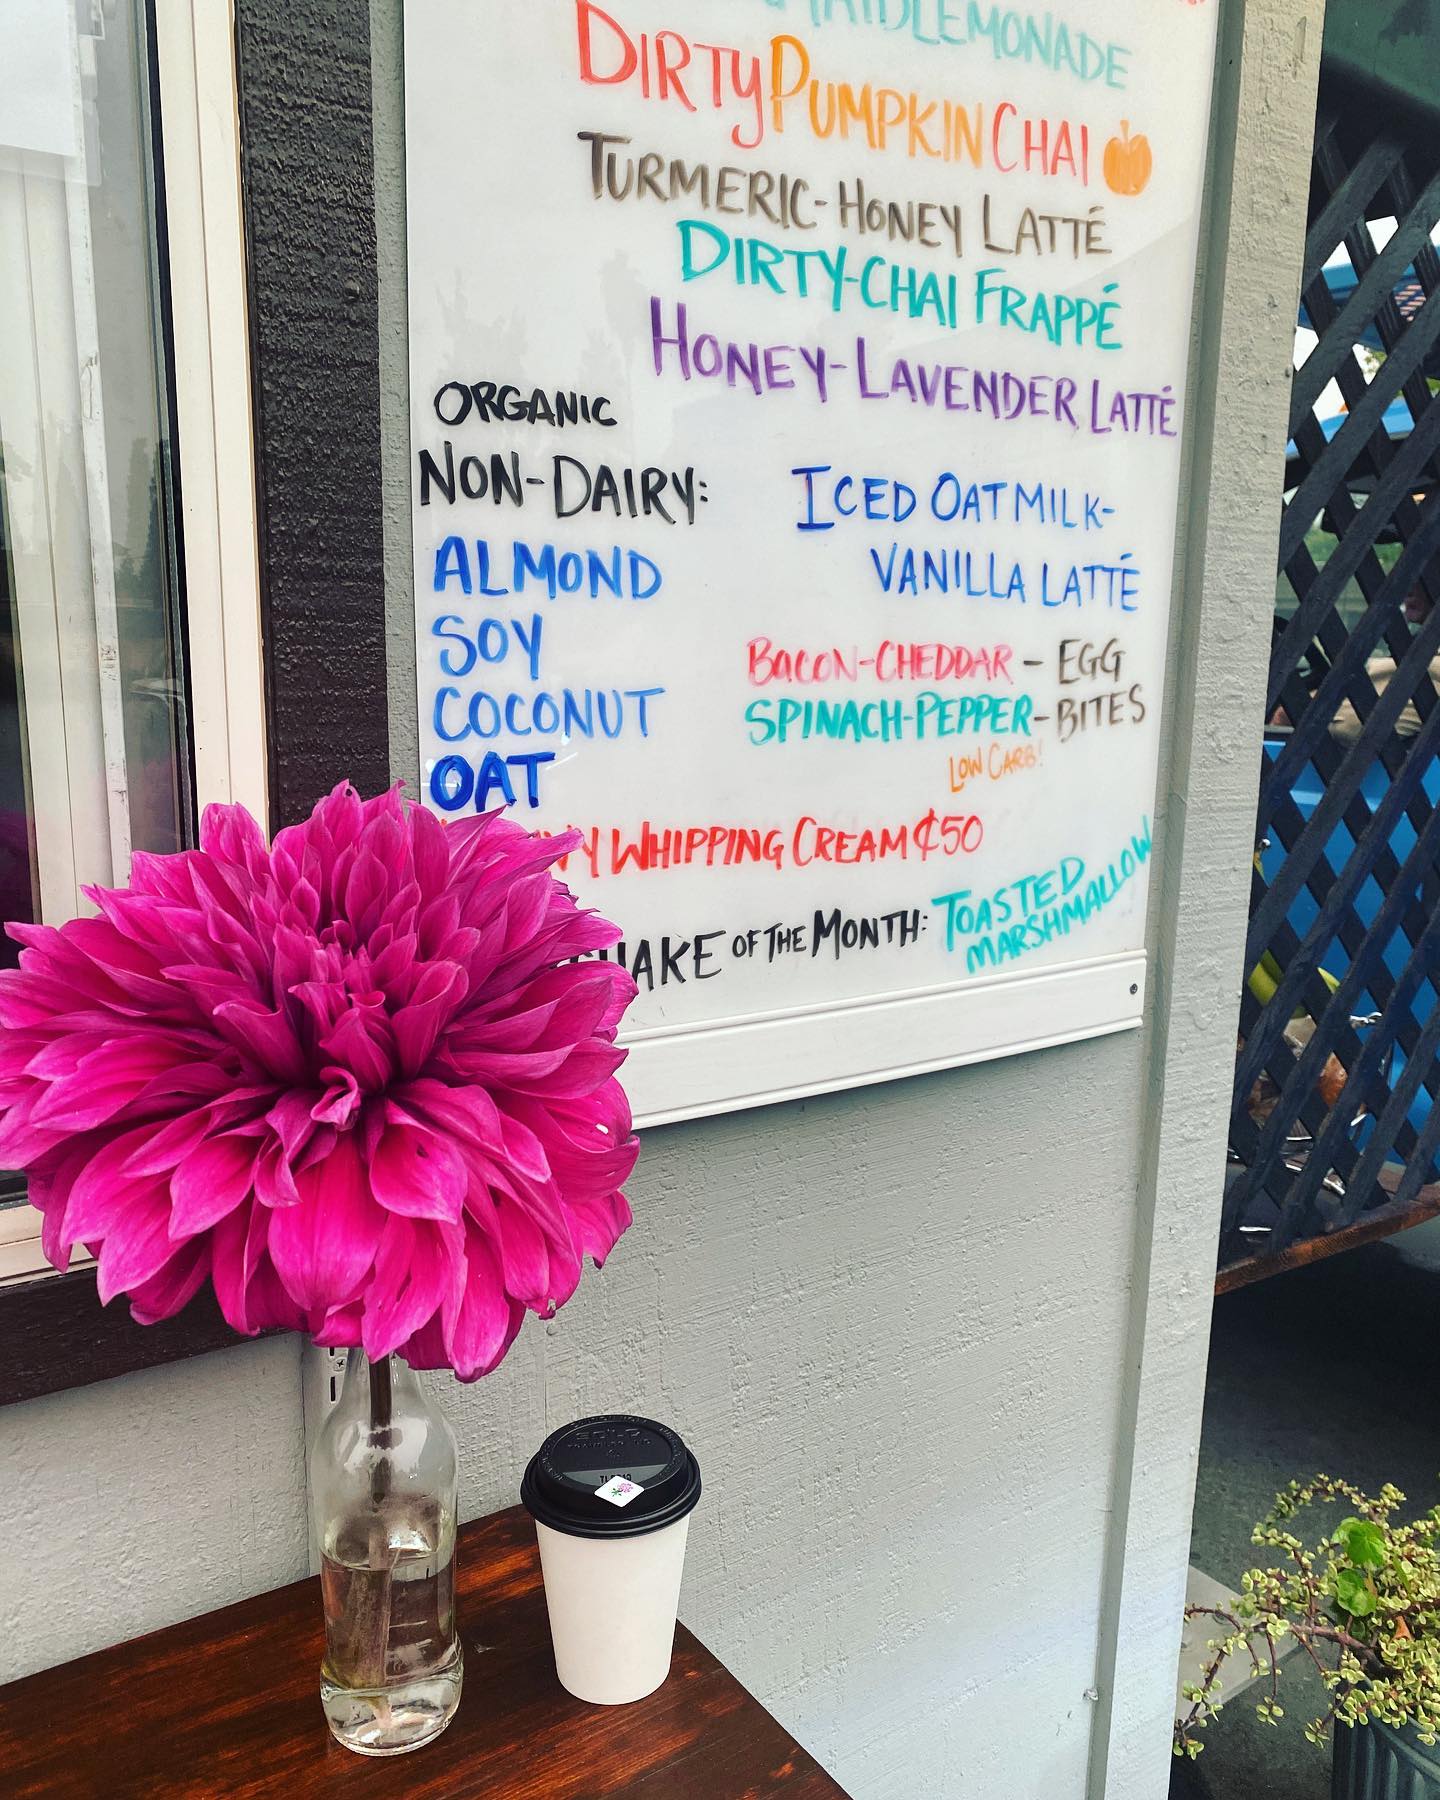 LEMONADE
DIRTY PUMPKIN CHAI
TURMERIC-HONEY LATTÉ
DIRTY-CHAI FRAPPÉ
HONEY-LAVENDER LATTÉ
ORGANIC
NON-DAIRY:
ALMOND
SOY
COCONUT
OAT
ICED OATMILK-
VANILLA LATTÉ
BACON-CHEDDAR - EGG
SPINACH-PEPPER- BITES
LOW CARB!
WHIPPING CREAM ¢50
SHAKE OF THE MONTH: TOASTED
MARSHMALLOW
SOLO